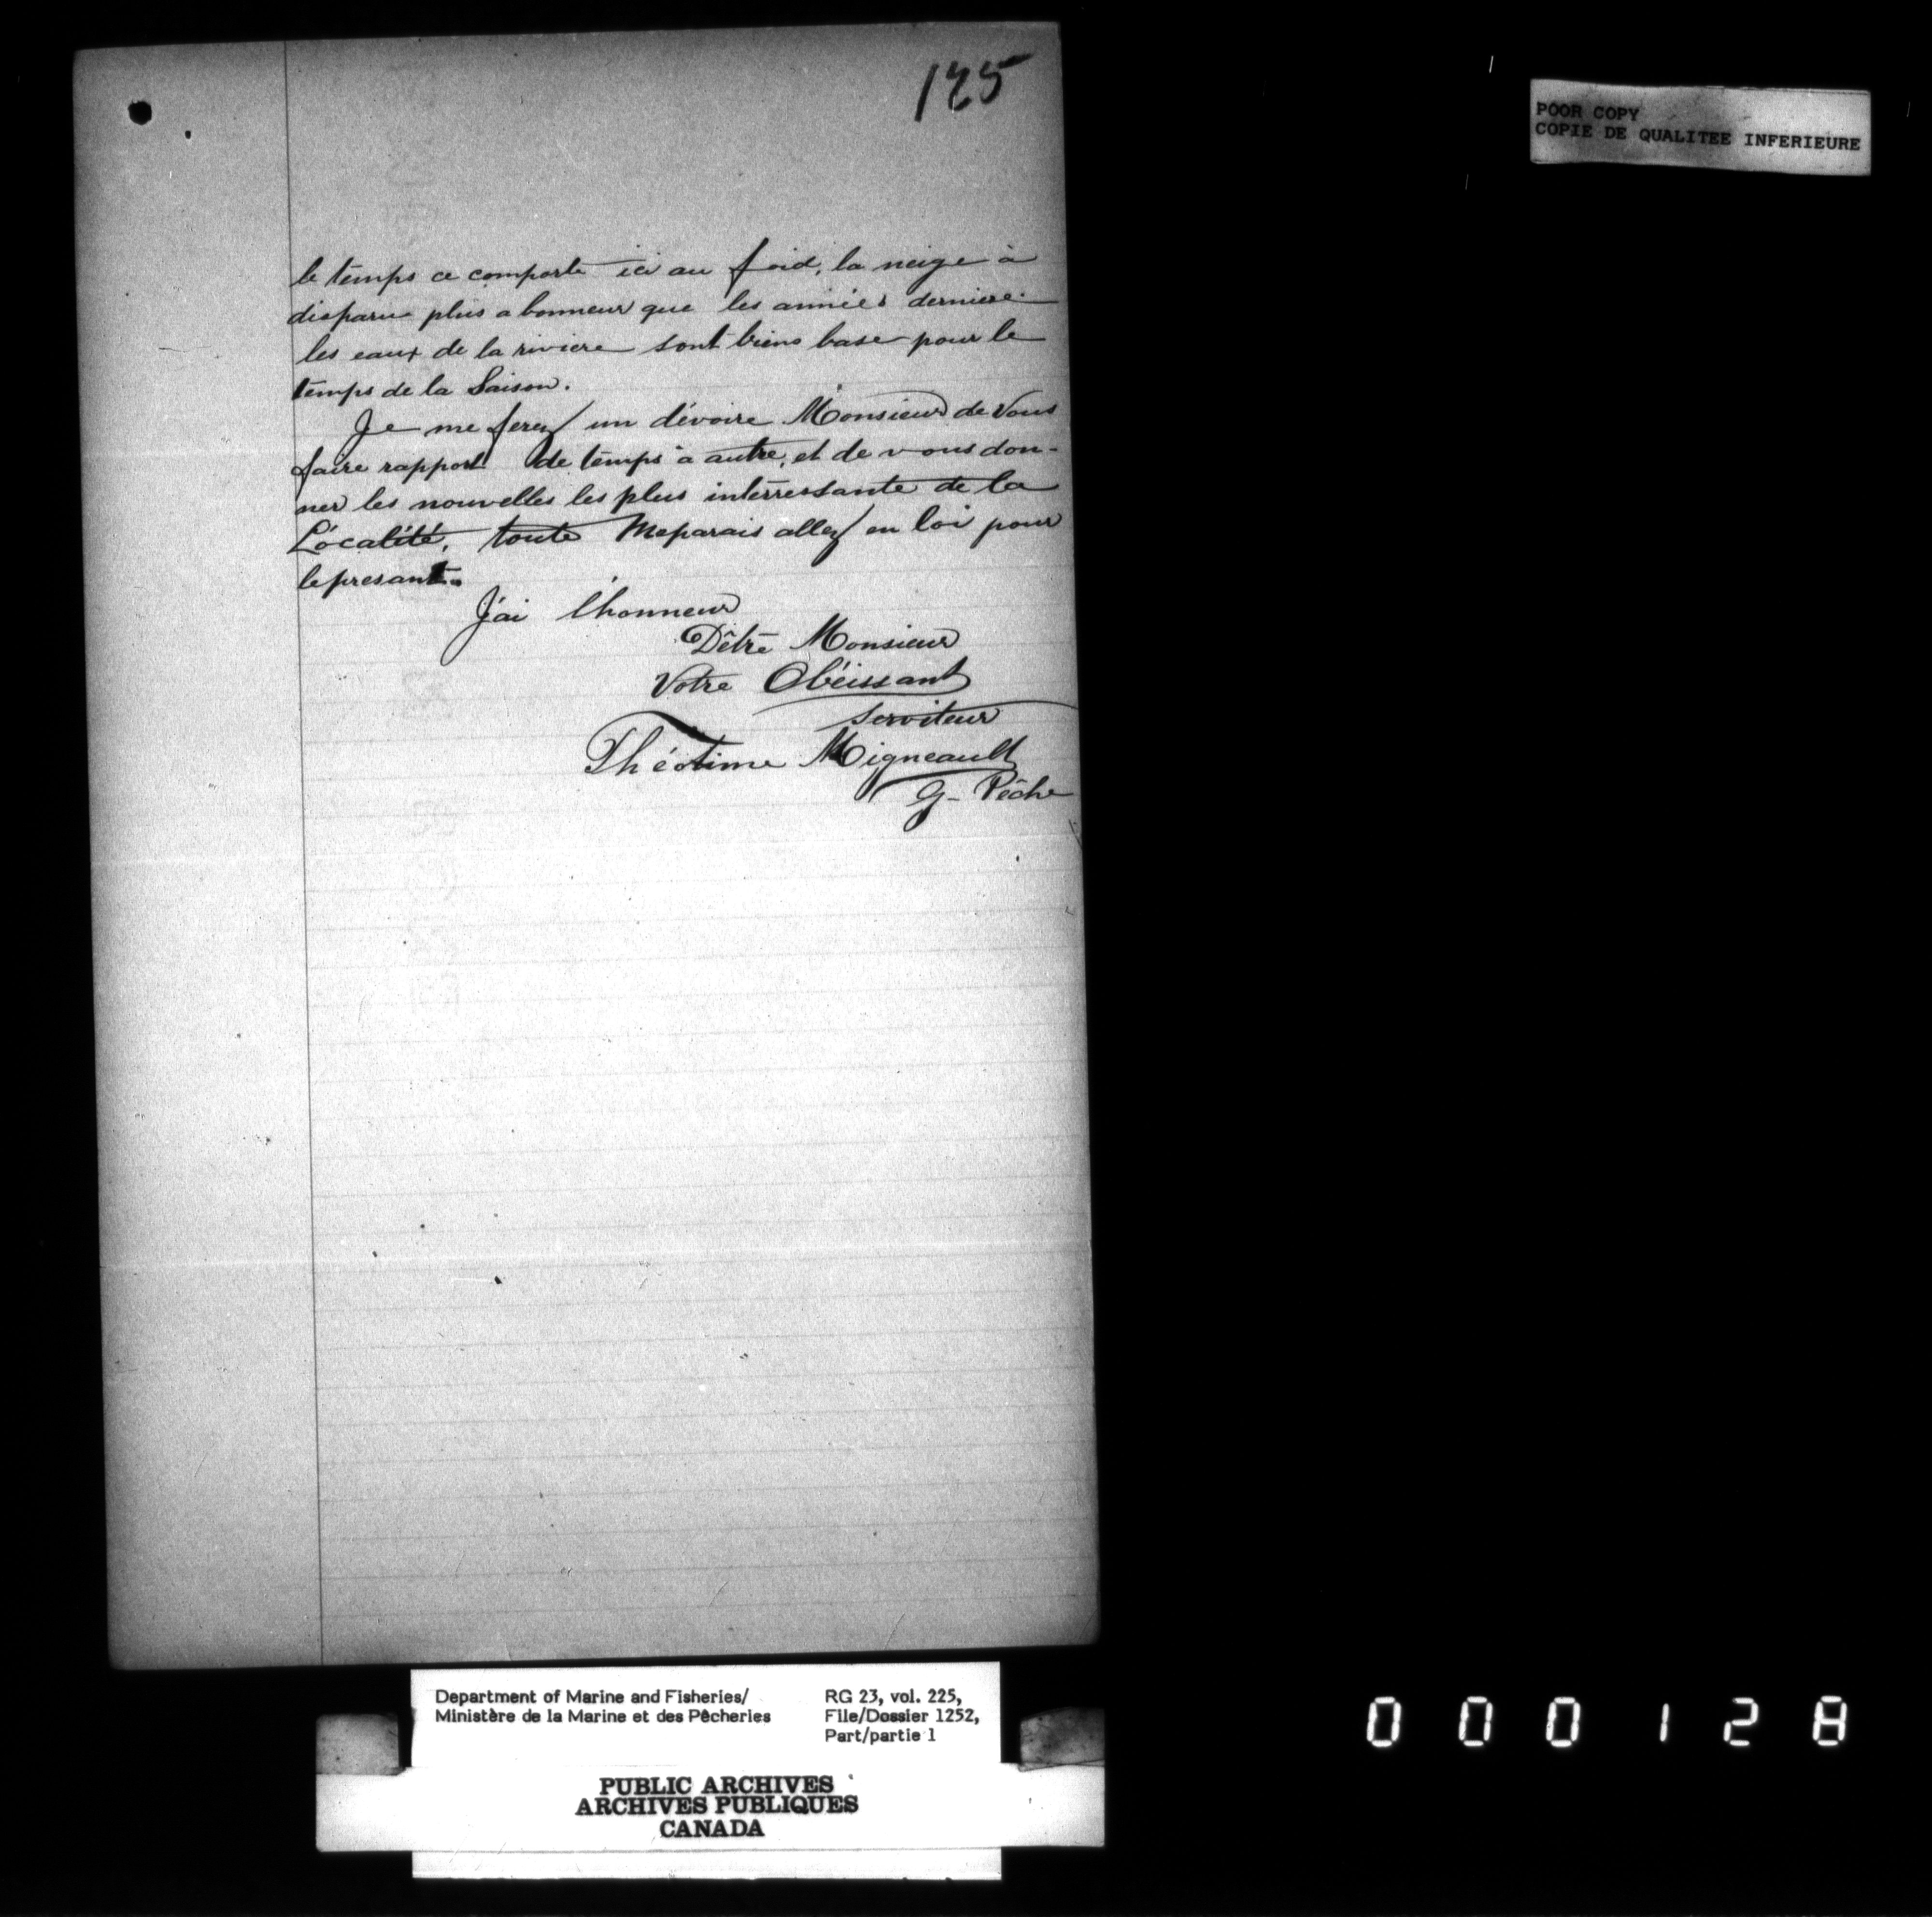 125
POOR COPY
COPIE DE QUALITEE INFERIEURE
le temps ce comporte ici au froid, la neige à
disparu plus a bonneur que les année's derniere.
les eaux de la riviere sont biens base pour le
temps de la Saison.
Je me ferez un dévoire Monsieur de Vous
faire rapport de temps à autre, et de vous don-
ner les nouvelles les plus intérressante de la
Localité, toute Meparais allez en loi pour
le presant.
J'ai l'honneur
D'être Monsieur
Votre Obéissant
Serviteur
Théotime Migneault
G- Pêche
Department of Marine and Fisheries/
Ministère de la Marine et des Pêcheries
RG 23, vol. 225,
File/Dossier 1252,
Part/partie 1
PUBLIC ARCHIVES
ARCHIVES PUBLIQUES
CANADA
000128